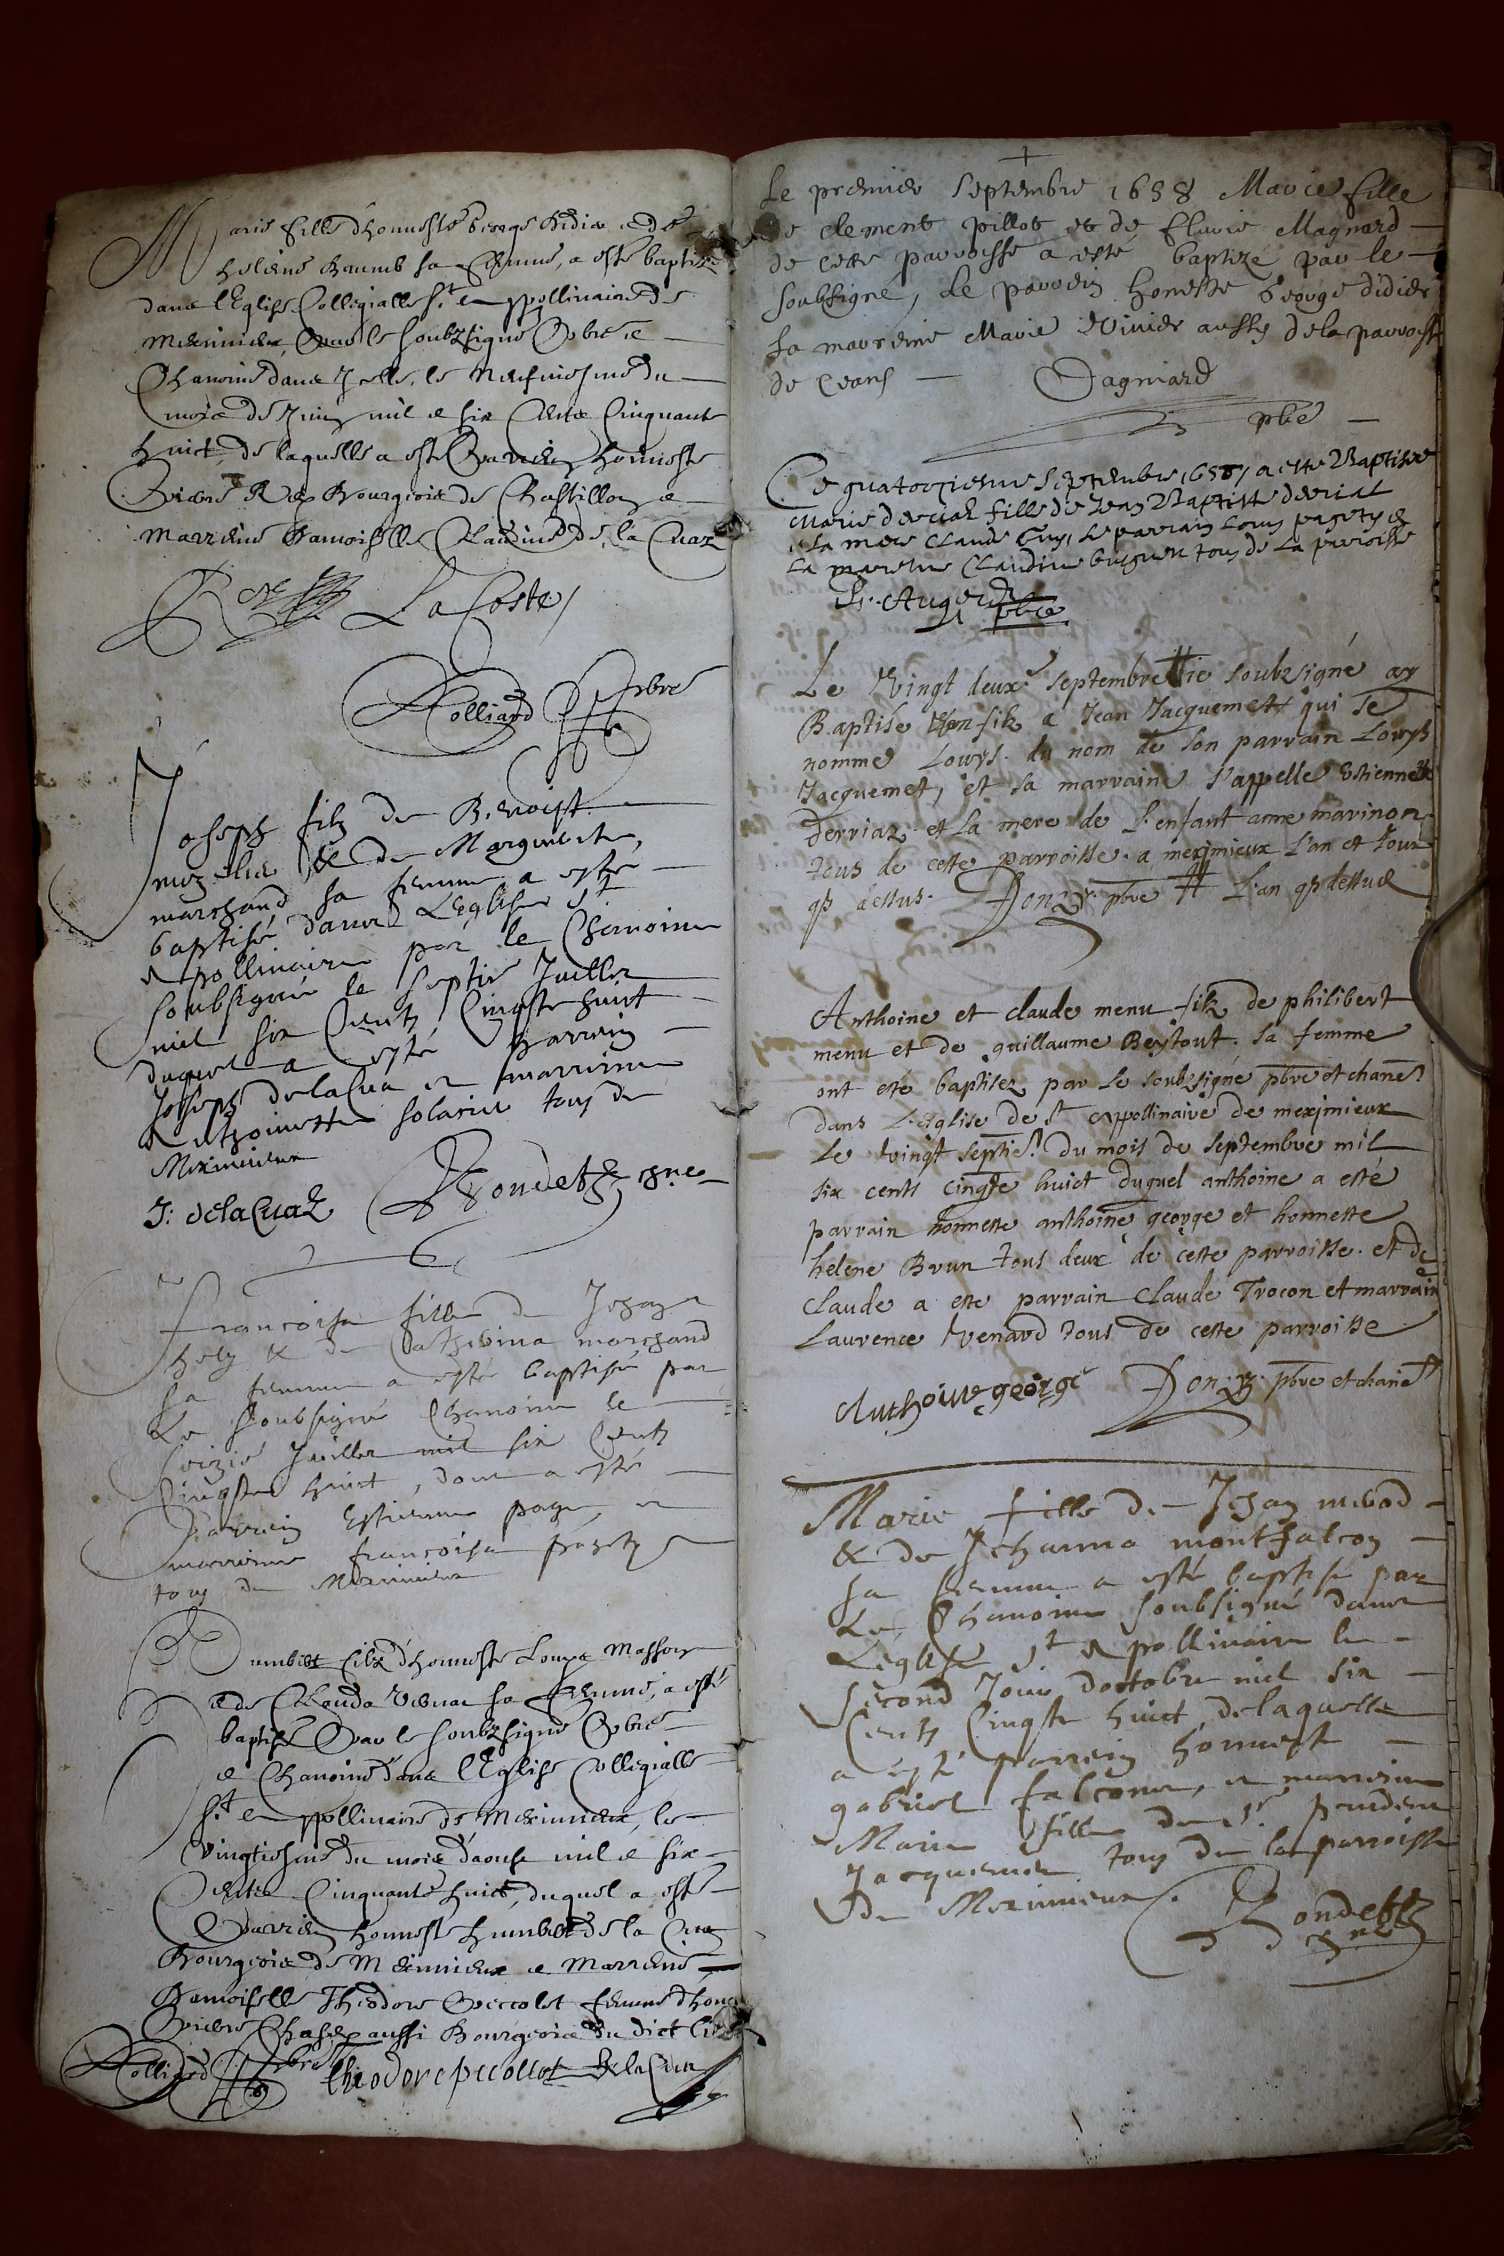 Marie fille d'honneste george didier e de
heleine sa femme, a esté baptisée
dans l'Eglise Collegialle St appollinaire de
Meximieux, par le soubzsigné pbre e
Chanoine dans Icelle, le neufviesme du
mois de Juin mil e six Cents Cinquante
huict, de laquelle a esté parrein honneste
pierre Bourgeois de Chastillon e
marreine damoiselle Claudine de la Cuaz
LaCoste
Rolliard pbre
Joseph filz de Benoist
de Marguerite
marchand sa femme a esté
baptisé dans L'eglise St
Appollinaire par le Chanoine
soubsigné le septie Juillet
mil six Centz Cinqte huict
duquel a esté parrein
Joseph delaCua et marreine
Anthoinette solarier tous de
Meximieux
J: delaCuaZ Rondetz chne
Francoise fille de Jehan
hely & de Catherina marchand
sa femme a esté baptisée par
Le soubsigné Chanoine le
seizie Juillet mil six Centz
Cinqte huict, dont a esté
Parrein Estienne page, et
marreine francoise pagetz
tous de Meximieux
Humbert filz d'honneste Louys Masson
e de Clauda sa femme, a esté
baptisé par le soubzsigné pbre
e Chanoine dans l'Eglise Collegialle
St appollinaire de Meximieux, le
vingtiesme du mois d'aoust mil e six
Cents Cinquante huict, duquel a esté
parrein honneste humbert de la Cua
Bourgeois de Meximieux e Marreine
Damoiselle Theodore peccolet femme d'hon
pierre aussi Bourgeois du dict lieu
Rolliard pbre theodore pecollet DelaCua
Le premier septembre 1658 Marie fille
de clement pillot et de fluvie Magnard
de cette parroisse a esté baptizé par le
soubsigné, Le parrein honeste george didier
la marreine Marie aussy de la parroisse
de ceans Dagniard
pbre
Ce quatorzieme Septembre 1658 a este Baptisee
Marie derriaz fille de Jean Baptiste derriaz
& la mere Claude Guy, le parrain Louys pagetz &
La mareine Claudine buguet tous de La parroisse
pbre
Le Vingt deuxe septembre Je soubzsigné ay
Baptise Un filz a Jean Jacquemet qui se
nomme Lowys. du nom de son parrain Lowys
Jacquemet, et sa marraine s'appelle Estiennette
Derriaz et la mere de L'enfant anne marinon
tous de cette parroisse a meximieux L'an et Jour
qs dessus. Donzy pbre L'an qs dessus
Anthoine et claude menu filz de philibert
menu et de guillaume Beytout. sa femme
ont esté baptisez par Le soubzsigné pbre et chane
dans L'eglise de St Appollinaire de meximieux
Le vingt septie du mois de septembre mil
six cents cinqte huict duquel anthoine a esté
parrain honneste anthoine george et honneste
helene Brun tous deux de ceste parroisse. et de
Claude a este parrain Claude Trocon et marraine
Laurence Venard tous de ceste parroisse
Anthoine george Donzy pbre et chane
Marie fille de Jehan
& de Jehanna montfalcon
sa femme a esté baptisé par
Le Chanoine soubsigné dans
L'eglise St Appollinaire le
second Jour d'octobre mil six
Centz Cinqte huict, de laquelle
a esté parrein honneste
gabriel falconet, et marreine
Marie fille de Sr prudent
Jacquemet tous de la parroisse
de Meximieux. Rondetz
chne